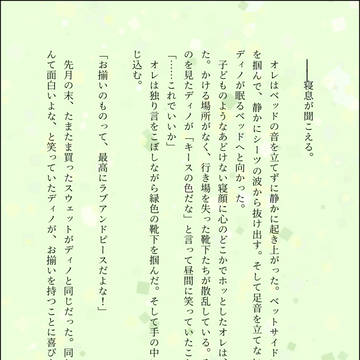 ――寝息が聞こえる。
オレはベッドの音を立てずに静かに起き上がった。ベットサイド
を掴んで、静かにシーツの波から抜け出す。そして足音を立てない
ディノが眠るベッドへと向かった。
子どものようなあどけない寝顔に心のどこかでホッとしたオレは
た。かける場所がなく、行き場を失った靴下たちが散乱している。
のを見たディノが「キースの色だな」と言って昼間に笑っていたこ
「……これでいいか」
オレは独り言をこぼしながら緑色の靴下を掴んだ。そして手の中
じ込む。
「お揃いのものって、最高にラブアンドピースだよな！」
先月の末、たまたま買ったスウェットがディノと同じだった。同
んて面白いよな、と笑っていたディノが、お揃いを持つことに喜び